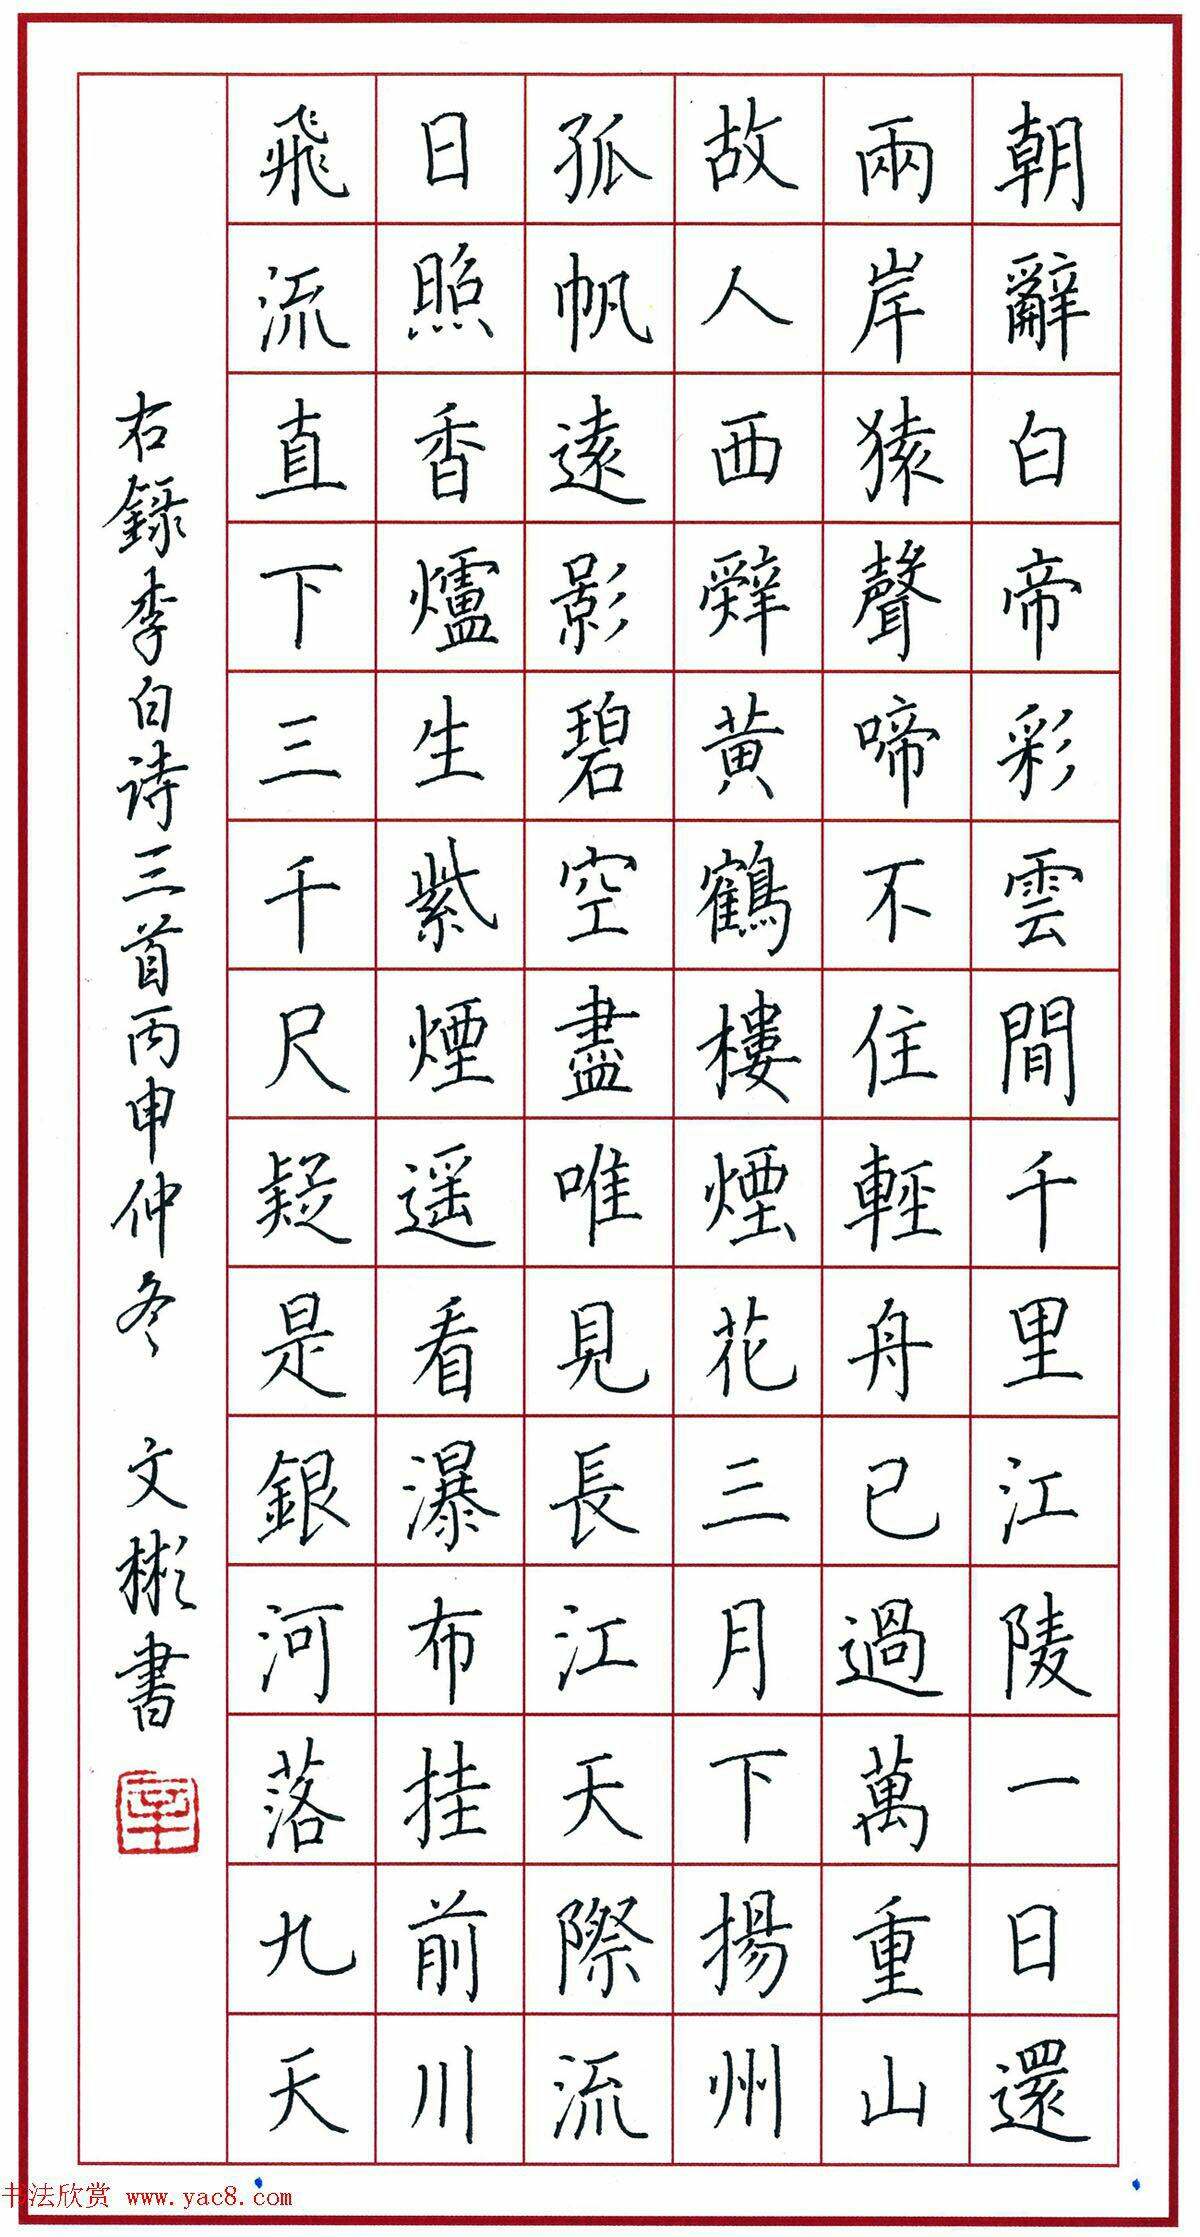 朝辭白帝彩雲間千里江陵一日還
兩岸猿聲啼不住輕舟已過萬重山
故人西辤黃鶴樓煙花三月下揚州
孤帆遠影碧空盡唯見長江天際流
日照香爐生紫煙遥看瀑布挂前川
飛流直下三千尺疑是銀河落九天
右録李白诗三首丙申仲冬 文彬書
书法欣赏 www.yac8.com